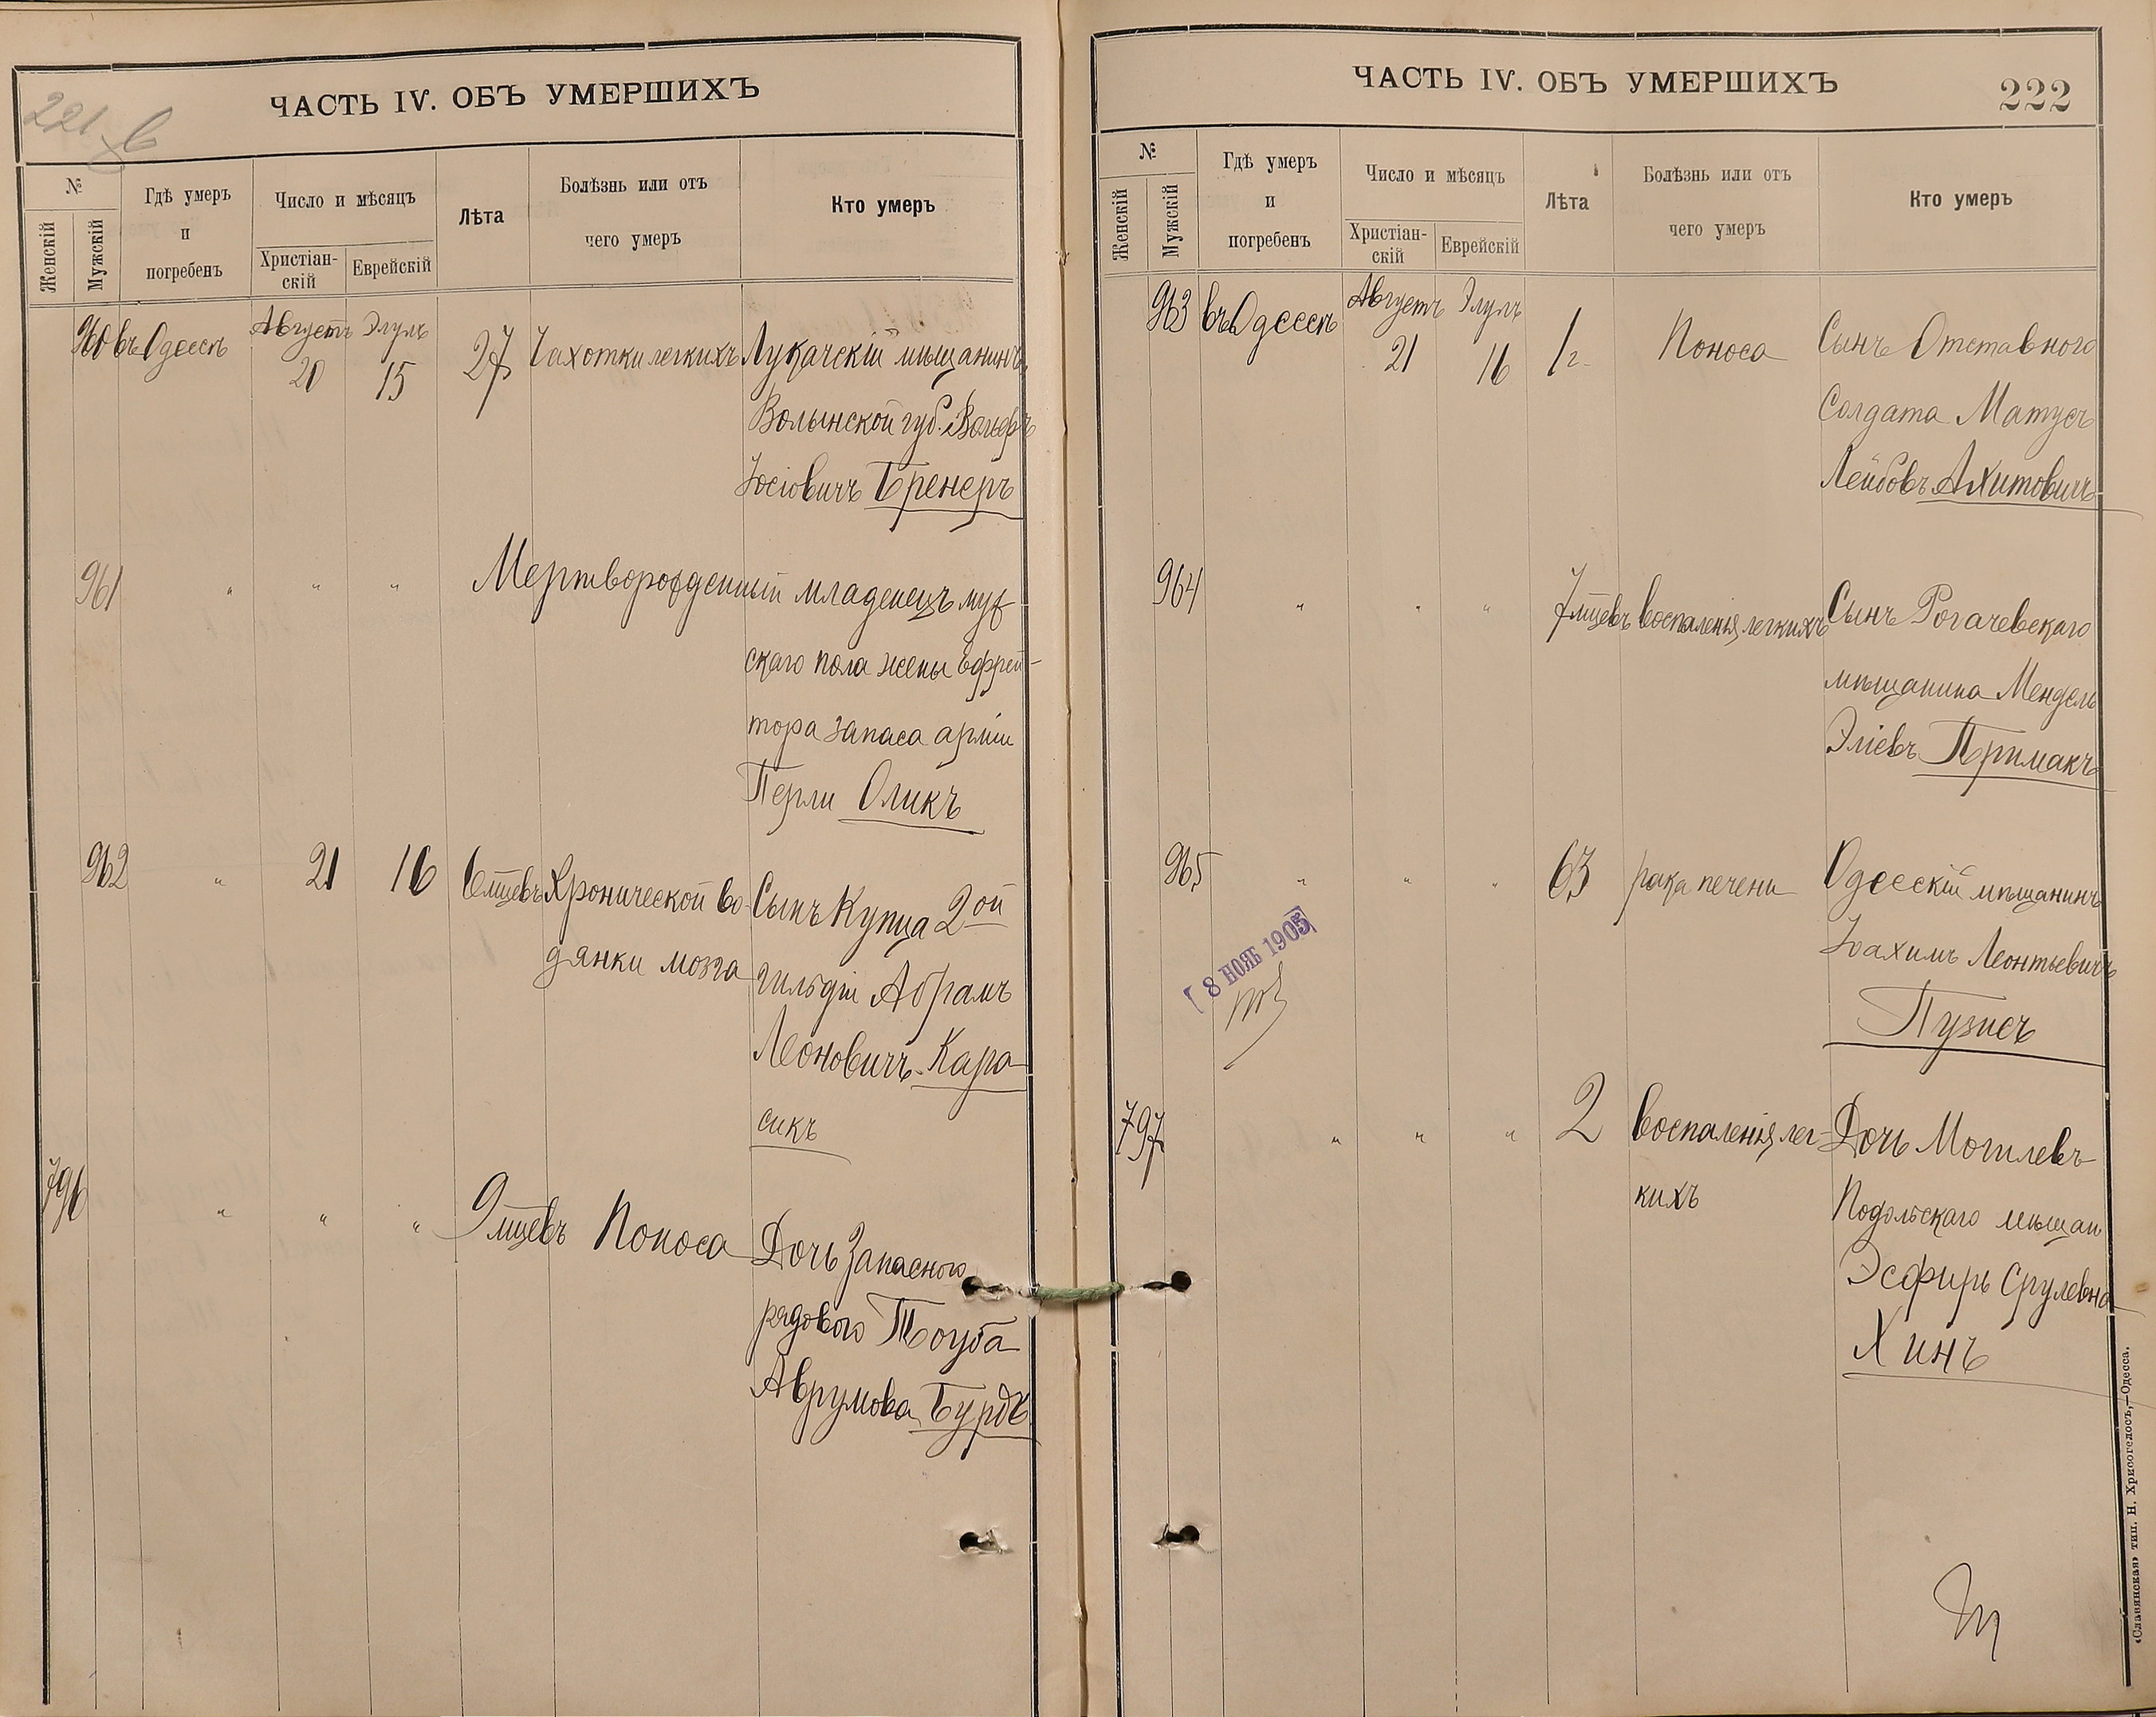 221 б
ЧАСТЬ IV. ОБЪ УМЕРШИХЪ
№
Женскій
Мужскій
Гдѣ умеръ
и
погребенъ
Число и мѣсяцъ
Христіан-
скій
Еврейскій
Лѣта
Болѣзнь или отъ
чего умеръ
Кто умеръ
960 въ Одессѣ Августъ 20 Элулъ 15 27 Чахотки легкихъ Луцкачскій мѣщанинъ
Волынской губ. Вольфъ
Іосіовичъ Бренеръ
961 " " " Мертворожденный младенецъ муж
скаго пола жены ефрей-
тора запаса арміи
Перли Оликъ
962 " 21 16 6 мцевъ Хронической во- Сынъ Купца 2ой
дянки мозга гильдіи Абрамъ
Леоновичъ Кара-
сикъ
796 " " " 9 мцевъ Поноса Дочь Запасного
рядового Тоуба
Аврумова Бурдъ
ЧАСТЬ IV. ОБЪ УМЕРШИХЪ
222
№
Женскій
Мужскій
Гдѣ умеръ
и
погребенъ
Число и мѣсяцъ
Христіан-
скій
Еврейскій
Лѣта
Болѣзнь или отъ
чего умеръ
Кто умеръ
963 въ Одессѣ Августъ 21 Элулъ 16 1 г. Поноса Сынъ Отставного
Солдата Матусъ
Лейбовъ Ахитовичъ
964 " " " 7 мцевъ воспаленія легкихъ Сынъ Рогачевскаго
мѣщанина Мендель
Эліевъ Примакъ
965 " " " 63 рака печени Одесскій мѣщанинъ
Іоахимъ Леонтьевичъ
Пузисъ
8 НОЯБ 1905
797 " " " 2 воспаленія лег- Дочь Могилевъ
кихъ Подольскаго мѣщан
Эсфирь Срулевна
Хинъ
«Славянская» тип. Н. Хрисогелосъ,—Одесса.